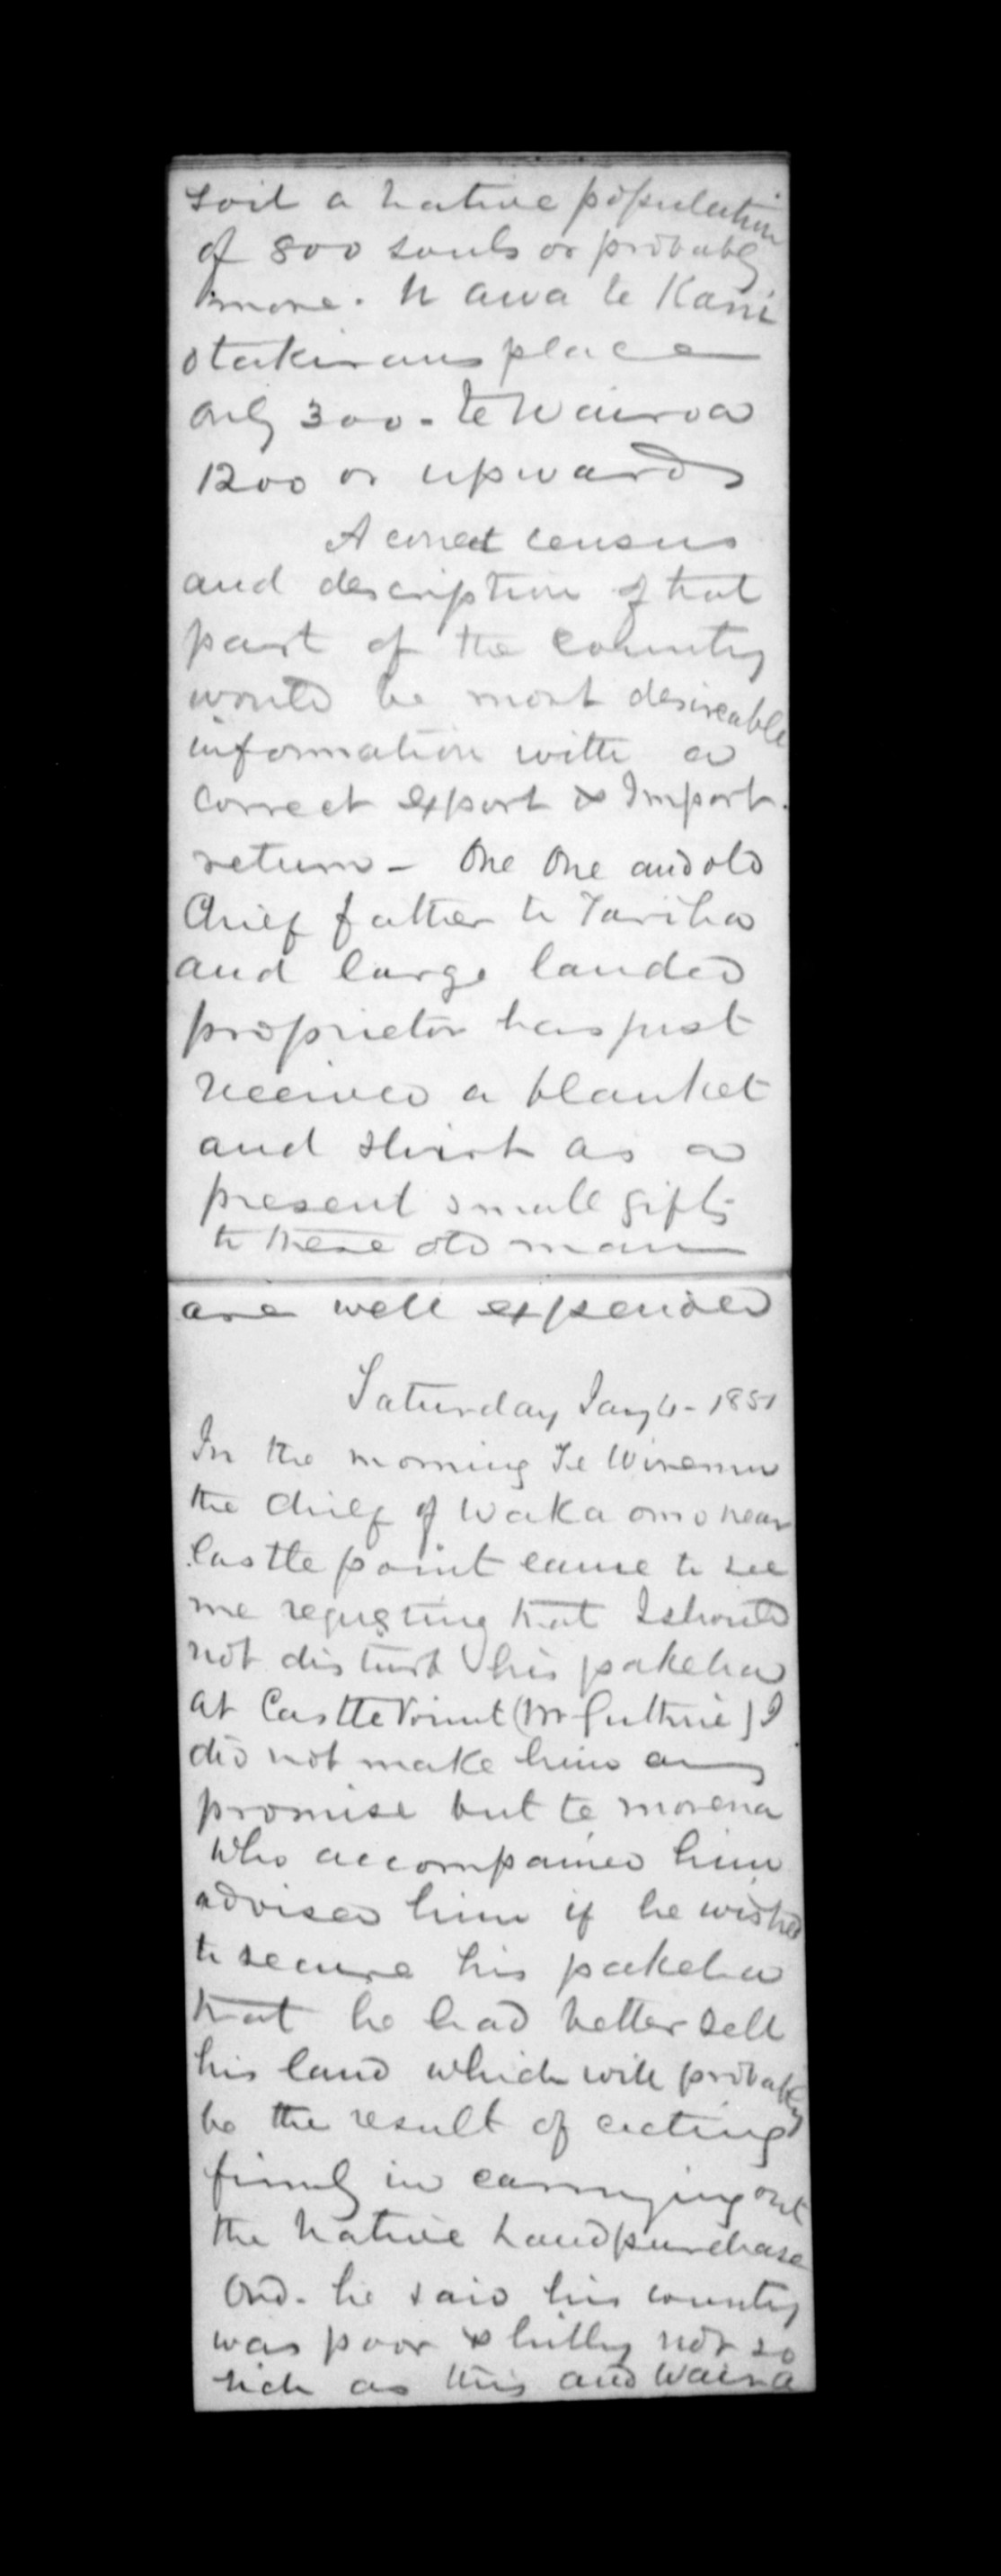 soil a native population
of 800 souls or probably
more. Uawa te Kani
otakiraus place
only 300 - te Wairoa
1200 or upwards
A correct census
and description of that
part of the country
would be most desireable
information with a
correct export & Import.
return - One One and old
Chief father to Tariha
and large landed
proprietor has just
received a blanket
and shirt as a
present small gifts
to these old man
are well expended
Saturday Jany 4 - 1851
In the morning Te Wiremu
the chief of Waka omo near
Castle point came to see
me requesting that I should
not disturb his pakeha
at Castle Point (Mr Guthrie) I
did not make him any
promise but te morena
who accompanied him
advised him if he wished
to secure his pakeha
that he had better sell
his land which will probably
be the result of acting
firmly in carrying out
the Native Land purchase
Ord. he said his country
was poor & hilly not so
rich as this and Waira